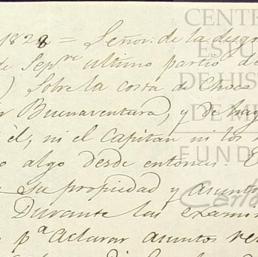 1828 = Señor. de la desgr
de Sepre ultimo partió de
) Sobre la costa de Choco
r Buenaventura, y de hay
el, ni el Capitan ni los
o algo desde entonces. E
e Su propiedad y asunto
Durante las examin
pa Aclarar asuntos res
CENTR
ESTU
DE HIS
DE ME
FUND
Carlo